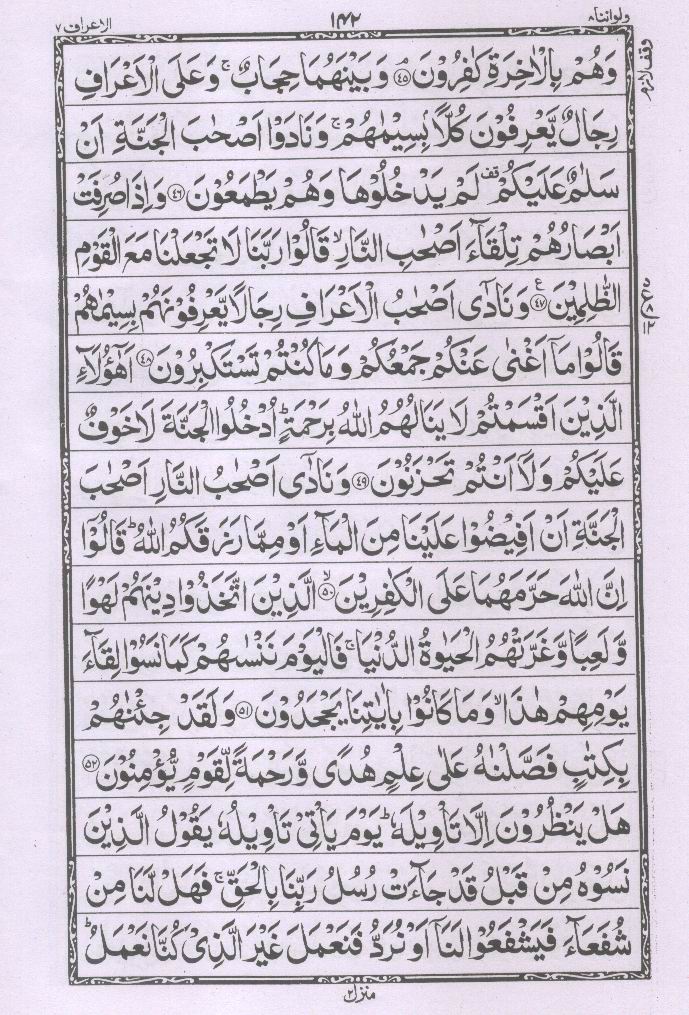 ولواننا٨ ١٤٢ الاعراف٧
وَهُمْ بِالْاٰخِرَةِ كٰفِرُوْنَ ۘ﴿۴۵﴾ وَبَيْنَهُمَا حِجَابٌ ۚ وَعَلَى الْاَعْرَافِ
وقف لازم
رِجَالٌ يَّعْرِفُوْنَ كُلًّاۢ بِسِيْمٰىهُمْ ۚ وَنَادَوْا اَصْحٰبَ الْجَنَّةِ اَنْ
سَلٰمٌ عَلَيْكُمْ ۟ لَمْ يَدْخُلُوْهَا وَهُمْ يَطْمَعُوْنَ ﴿۴۶﴾ وَاِذَا صُرِفَتْ
اَبْصَارُهُمْ تِلْقَآءَ اَصْحٰبِ النَّارِ ۙ قَالُوْا رَبَّنَا لَا تَجْعَلْنَا مَعَ الْقَوْمِ
الظّٰلِمِيْنَ ﴿۴۷﴾ع وَنَادٰٓى اَصْحٰبُ الْاَعْرَافِ رِجَالًا يَّعْرِفُوْنَهُمْ بِسِيْمٰىهُمْ
قَالُوْا مَآ اَغْنٰى عَنْكُمْ جَمْعُكُمْ وَمَا كُنْتُمْ تَسْتَكْبِرُوْنَ ﴿۴۸﴾ اَهٰٓؤُلَآءِ
الَّذِيْنَ اَقْسَمْتُمْ لَا يَنَالُهُمُ اللّٰهُ بِرَحْمَةٍ ؕ اُدْخُلُوا الْجَنَّةَ لَا خَوْفٌ
عَلَيْكُمْ وَلَآ اَنْتُمْ تَحْزَنُوْنَ ﴿۴۹﴾ وَنَادٰٓى اَصْحٰبُ النَّارِ اَصْحٰبَ
الْجَنَّةِ اَنْ اَفِيْضُوْا عَلَيْنَا مِنَ الْمَآءِ اَوْ مِمَّا رَزَقَكُمُ اللّٰهُ ؕ قَالُوْٓا
اِنَّ اللّٰهَ حَرَّمَهُمَا عَلَى الْكٰفِرِيْنَ ۙ﴿۵۰﴾ الَّذِيْنَ اتَّخَذُوْا دِيْنَهُمْ لَهْوًا
وَّلَعِبًا وَّغَرَّتْهُمُ الْحَيٰوةُ الدُّنْيَا ۚ فَالْيَوْمَ نَنْسٰىهُمْ كَمَا نَسُوْا لِقَآءَ
يَوْمِهِمْ هٰذَا ۙ وَمَا كَانُوْا بِاٰيٰتِنَا يَجْحَدُوْنَ ﴿۵۱﴾ وَلَقَدْ جِئْنٰهُمْ
بِكِتٰبٍ فَصَّلْنٰهُ عَلٰى عِلْمٍ هُدًى وَّرَحْمَةً لِّقَوْمٍ يُّؤْمِنُوْنَ ﴿۵۲﴾
هَلْ يَنْظُرُوْنَ اِلَّا تَاْوِيْلَهٗ ؕ يَوْمَ يَاْتِيْ تَاْوِيْلُهٗ يَقُوْلُ الَّذِيْنَ
نَسُوْهُ مِنْ قَبْلُ قَدْ جَآءَتْ رُسُلُ رَبِّنَا بِالْحَقِّ ۚ فَهَلْ لَّنَا مِنْ
شُفَعَآءَ فَيَشْفَعُوْا لَنَآ اَوْ نُرَدُّ فَنَعْمَلَ غَيْرَ الَّذِيْ كُنَّا نَعْمَلُ ؕ
منزل٢